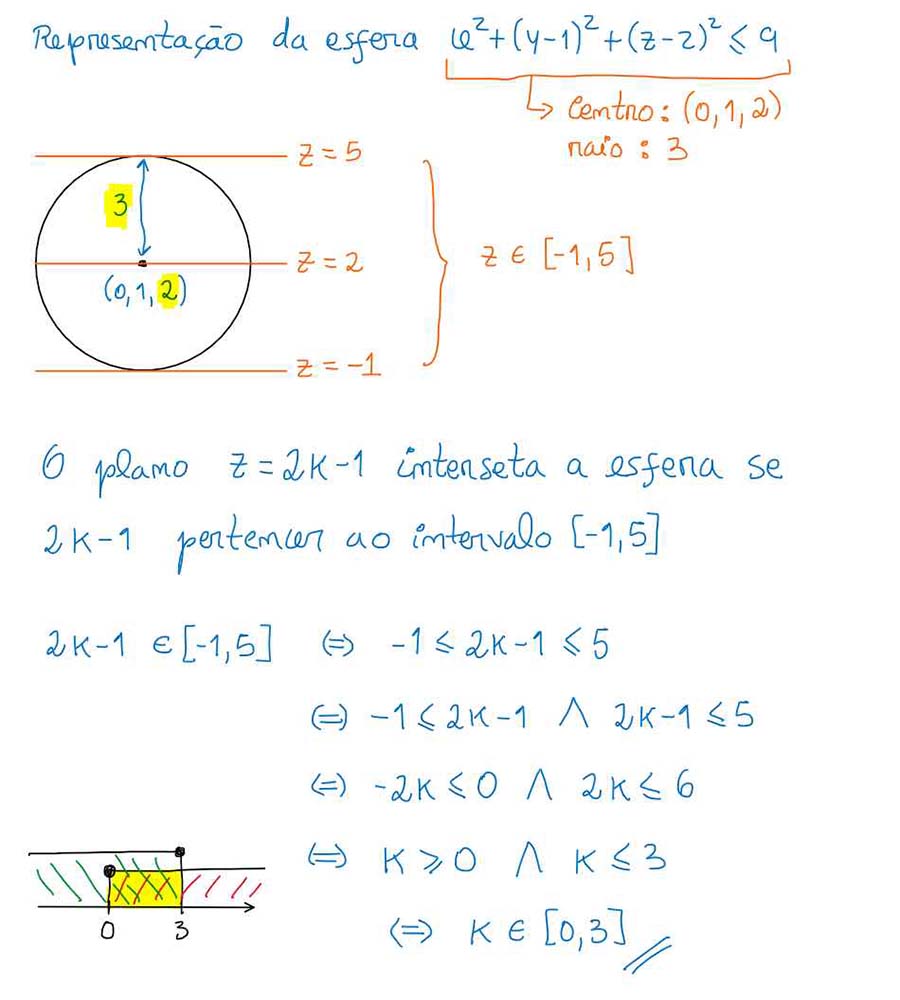 Representação da esfera x²+(y-1)²+(z-2)² ≤ 9
↳ Centro: (0,1,2)
raio: 3
z=5
3
z=2
z ∈ [-1,5]
(0,1,2)
z=-1
O plano z=2k-1 interseta a esfera se
2k-1 pertencer ao intervalo [-1,5]
2k-1 ∈ [-1,5] (=) -1 ≤ 2k-1 ≤ 5
(=) -1 ≤ 2k-1 ∧ 2k-1 ≤ 5
(=) -2k ≤ 0 ∧ 2k ≤ 6
(=) k ≥ 0 ∧ k ≤ 3
0 3
(=) k ∈ [0,3]